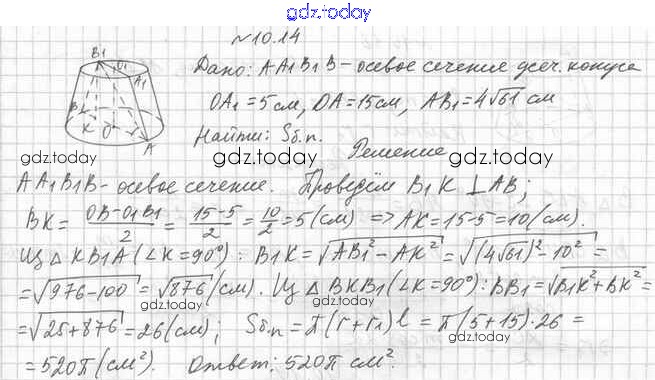 gdz.today
№10.14
Дано: AA1B1B - осевое сечение усеч. конуса
OA1 = 5 см, OA = 15 см, AB1 = 4√61 см
Найти: Sб.п.
gdz.today gdz.today gdz.today
Решение
AA1B1B - осевое сечение. Проведём B1K ⊥ AB;
BK = (OB-O1B1)/2 = (15-5)/2 = 10/2 = 5 (см) => AK = 15-5 = 10 (см).
Из Δ KB1A (∠K = 90°): B1K = √(AB1² - AK²) = √((4√61)² - 10²) =
= √(976-100) = √876 (см). Из Δ BKB1 (∠K = 90°): BB1 = √(B1K² + BK²) =
gdz.today gdz.today
= √(25+876) = 26 (см); Sб.п = π(r+r1)l = π(5+15)·26 =
= 520π (см²). Ответ: 520π см².
gdz.today gdz.today
B1 O1 A1
B K O A